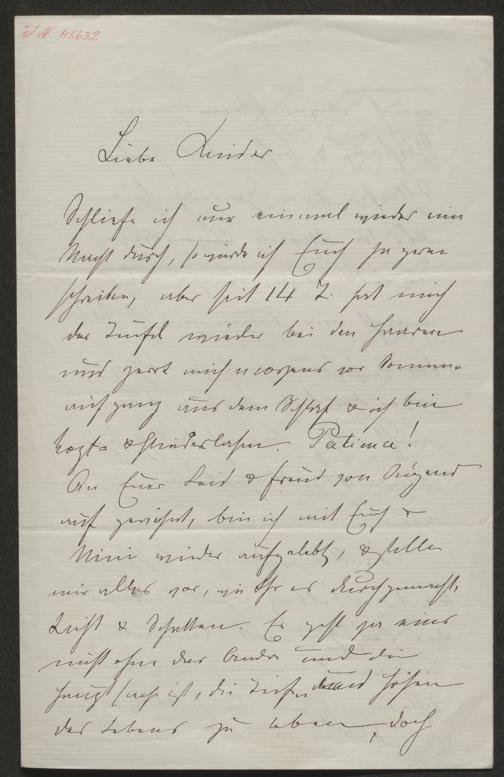 J N 45632
Liebe Kinder
Schliefe ich nur einmal wieder eine
Nacht durch, so würde ich Euch so gern
schreiben, aber seit 14 T. hat mich
der Teufel wieder bei den Haaren
und zerrt mich morgens vor Sonnen-
aufgang aus dem Schlaf & ich bin
kopf- & gliederlahm. Patience!
An Euer Leid & Freud von Jugend
auf gewöhnt, bin ich mit Euch &
Mimi wieder aufgelebt, & stelle
mir alles vor, wie Ihr es durchgemacht,
Licht & Schatten. Es geht ja eins
nicht ohne das Andre und die
Hauptsache ist, die Tiefen und Höhen
des Lebens zu leben, doch